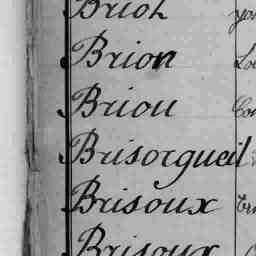 Brion
Brion
Briou
Brisorgueil
Brisoux
Brisoux